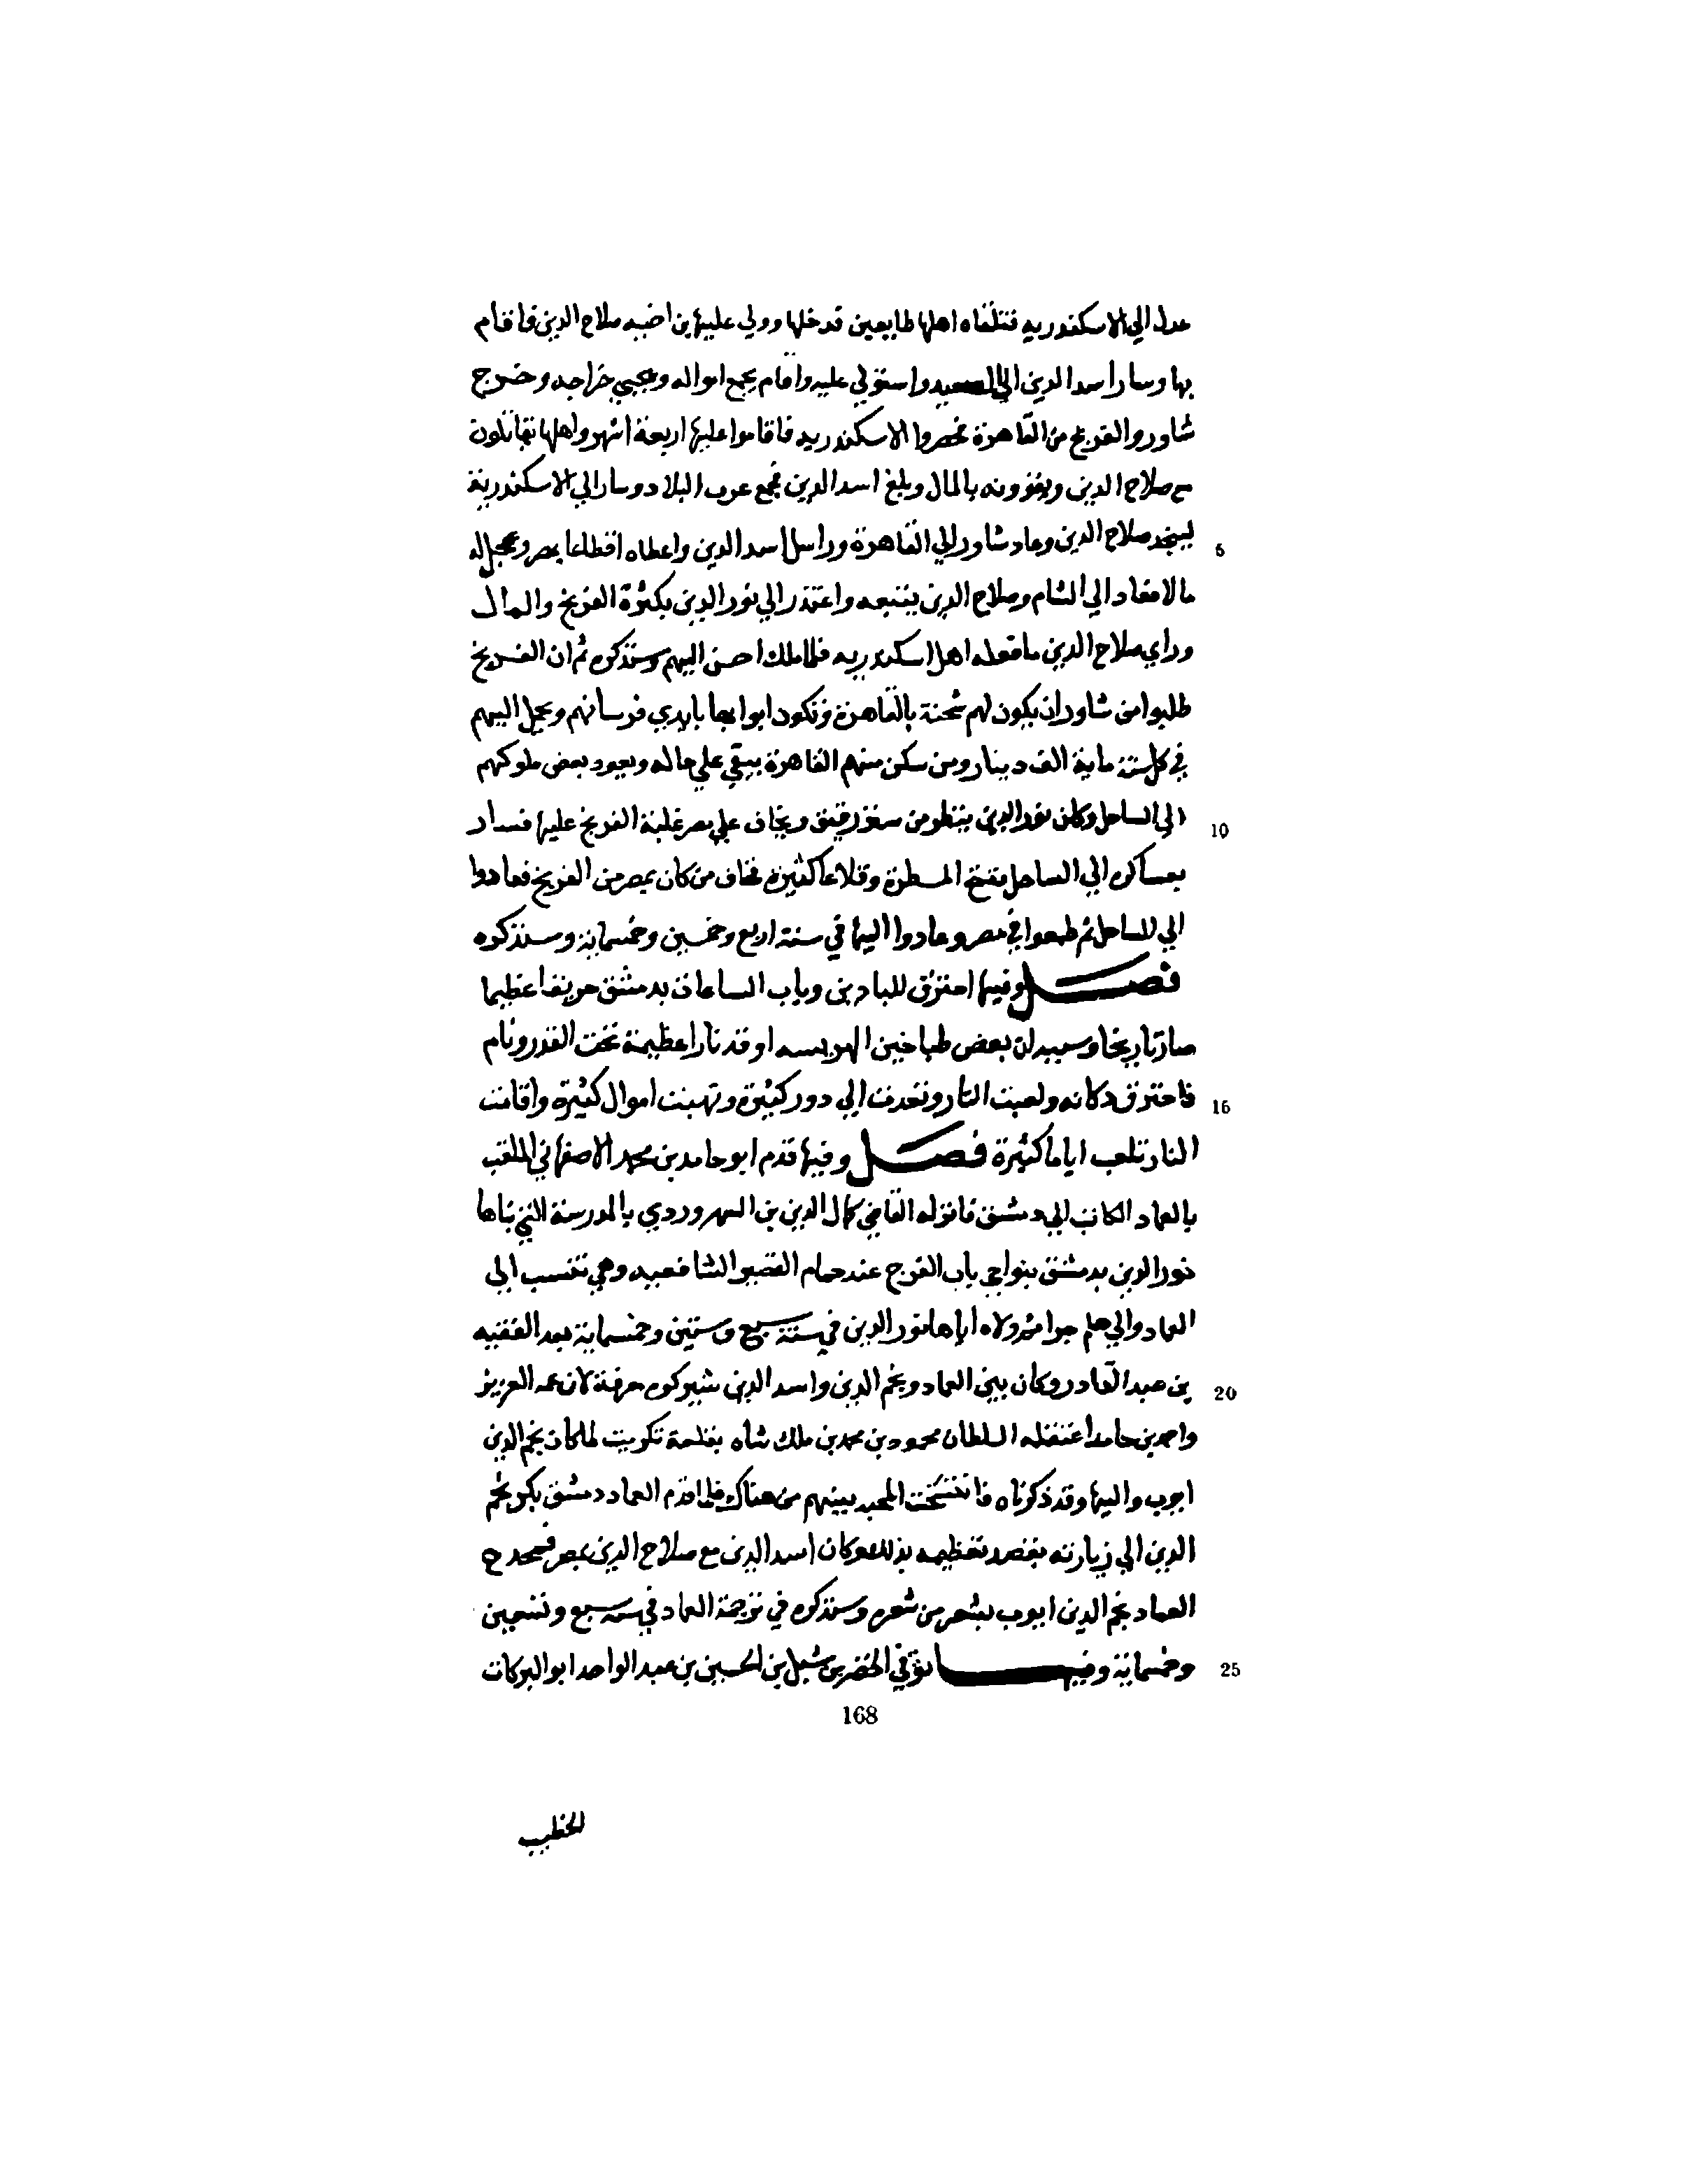 عدل الي الاسكندريه فتلقاه اهلها طايعين فدخلها وولي عليها بن اخيه صلاح الدين فاقام
بها وسار اسد الدين الي الصعيد واستولي عليه واقام يجمع امواله ويجبي خراجه وخرج
شاور والفرنج من القاهرة فحصروا الاسكندريه فاقاموا عليها اربعة اشهر واهلها يقاتلون
مع صلاح الدين ويقوونه بالمال وبلغ اسد الدين فجمع عرب البلاد وسار الي الاسكندرية
5 لينجد صلاح الدين وعاد شاور الي القاهرة وراسل اسد الدين واعطاه اقطاعا بمصر وعجل له
مالا فعاد الي الشام وصلاح الدين يتبعه واعتذر الي نور الدين بكثرة الفرنج والمال
وراي صلاح الدين ما فعله اهل اسكندريه فلما ملك احسن اليهم وسنذكره ثم ان الفرنج
طلبوا من شاور ان يكون لهم شحنة بالقاهرة وتكون ابوابها بايدي فرسانهم ويحمل اليهم
في كل سنة ماية الف دينار ومن سكن منهم القاهرة يبقي علي حاله ويعود بعض ملوكهم
10 الي الساحل وكان نور الدين ينظر من ستر رقيق ويخاف علي مصر غلبة الفرنج عليها فسار
بعساكره الي الساحل بفتح المنيطرة وقلاعا كثيرة فخاف من كان بمصر من الفرنج فعادوا
الي الساحل ثم طمعوا في مصر وعادوا اليها في سنة اربع وخمسين وخمسماية وسنذكره
فصل وفيها احترق اللبادين وباب الساعات بدمشق حريقا عظيما
صار تاريخا وسببه ان بعض طباخين الهريسه اوقد نارا عظيمة تحت القدر ونام
15 فاحترق دكانه ولعبت النار وتعدت الي دور كثيرة ونهبت اموال كثيرة واقامت
النار تلعب اياما كثيرة فصل وفيها قدم ابو حامد بن محمد الاصفهاني الملقب
بالعماد الكاتب الي دمشق فانزله القاضي كمال الدين بن السهروردي بالمدرسة التي بناها
نور الدين بدمشق بنواحي باب الفرج عند حمام القصير الشافعيه وهي تنتسب الي
العماد والي هلم جرا ثم ولاه اياها نور الدين في سنة سبع وستين وخمسماية بعد الفقيه
20 بن عبد القادر وكان بين العماد ونجم الدين واسد الدين شيركوه معرفة لان عمه العزيز
واحمد بن حامد اعتقله السلطان محمود بن محمد بن ملك شاه بقلعة تكريت لما كان نجم الدين
ايوب واليها وقد ذكرناه فانتسجت المحبه بينهم من هناك فلما قدم العماد دمشق بكر نجم
الدين الي زيارته بقصد تعظيمه بذلك وكان اسد الدين مع صلاح الدين بمصر فمدح
العماد نجم الدين ايوب بشعر من شعره وسنذكره في ترجمة العماد في سنة سبع وتسعين
25 وخمسماية وفيها توفي الخضر بن شبل بن الحسين بن عبد الواحد ابو البركات
168
الخطيب